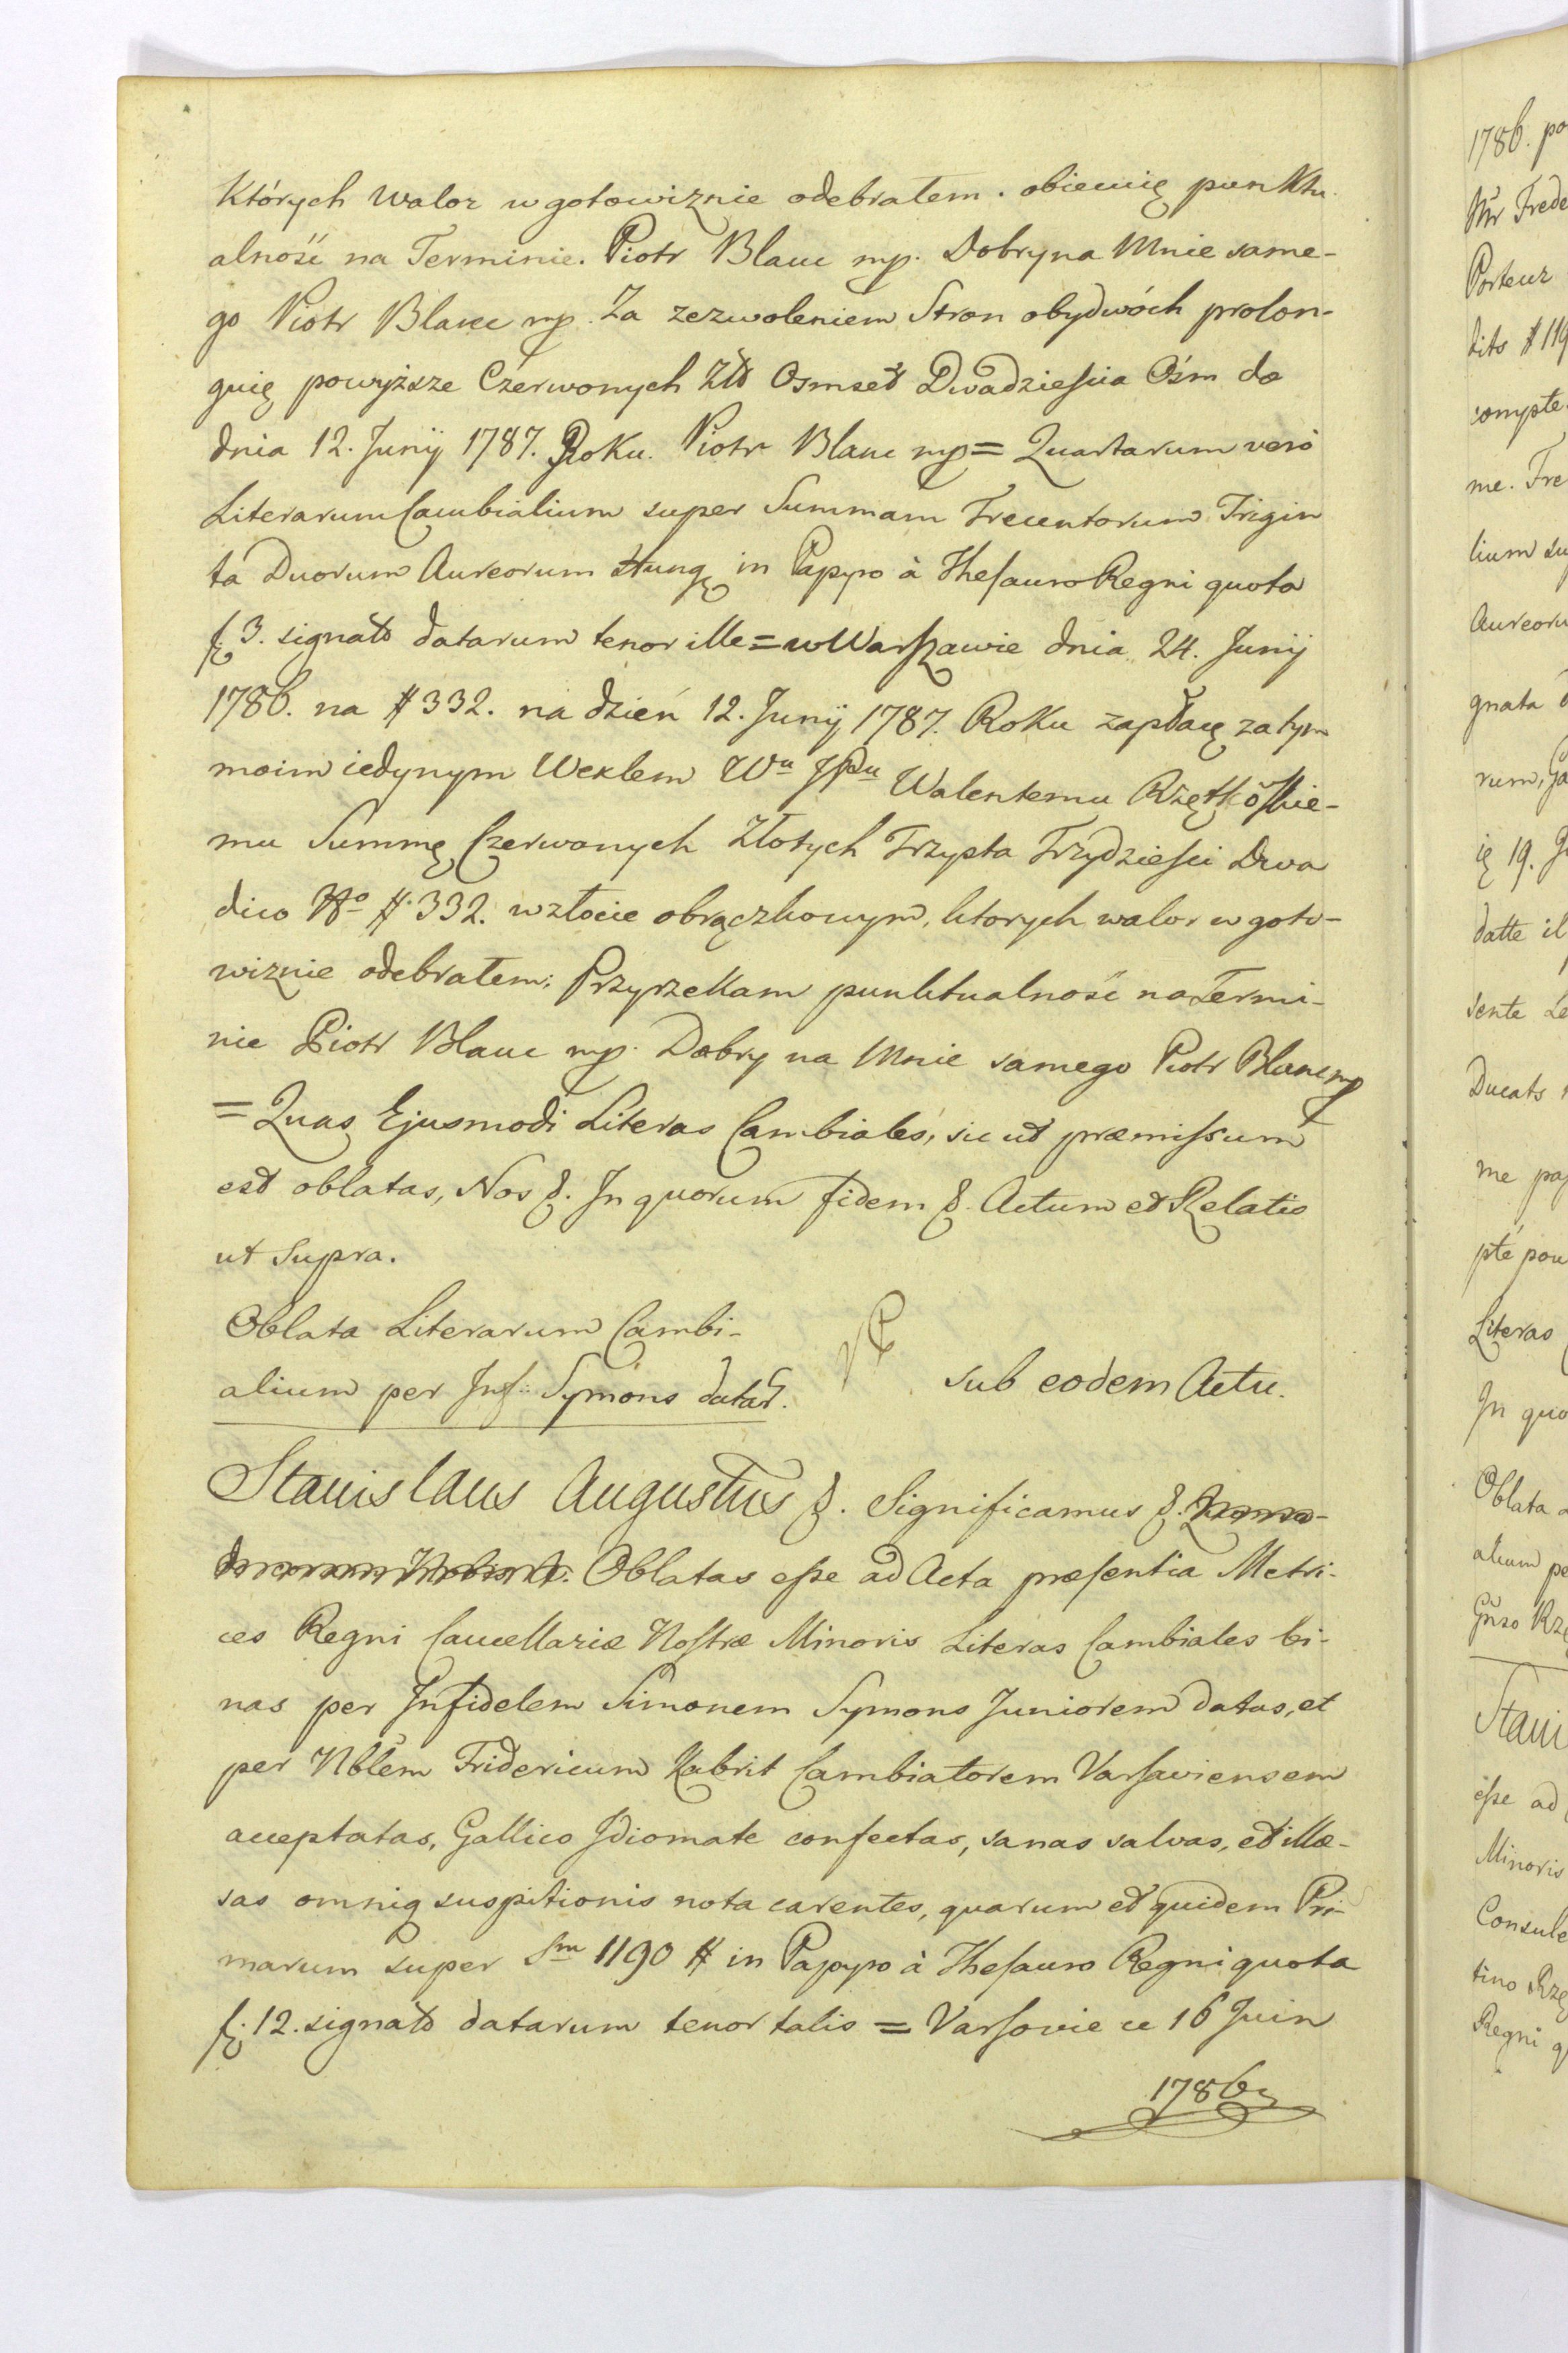 Których walor w gotowiznie odebrałem. obiecuię punktu-
alność na Terminie. Piotr Blanc mp. Dobry na Mnie same-
go Piotr Blanc mp. Za zezwoleniem Stron obydwóch prolon-
guię powyższe Czerwonych Złt Osmset Dwadzieścia Ośm do
dnia 12. Junij 1787. Roku. Piotr Blanc mp = Quartarum verò
Literarum Cambialium super Summam Trecentorum Trigin
ta Duorum Aureorum Hung in Papyro à Thesauro Regni quota
f. 3. signato datarum tenor ille = w Warszawie dnia 24. Junij
1786. na # 332. na dzień 12. Junij 1787. Roku zapłacę za tym
moim iedynym Wexlem Wu JPu Walentemu Rzętkoskie-
mu Summę Czerwonych Złotych Trzysta Trzydzieści Dwa
dico No # 332. w złocie obrączkowym, ktorych walor w goto-
wiznie odebrałem; Przyrzekam punktualność na Termi-
nie Piotr Blanc mp. Dobry na Mnie samego Piotr Blanc mp
= Quas Ejusmodi Literas Cambiales, sic ut præmissum
est oblatas, Nos &. In quorum fidem &. Actum et Relatio
ut Supra.
Oblata Literarum Cambi-
alium per Inf: Symons datar.
sub eodem Actu.
Stanislaus Augustus &. Significamus &.
Oblatas esse ad Acta præsentia Metri-
ces Regni Cancellariæ Nostræ Minoris Literas Cambiales bi-
nas per Infidelem Simonem Symons Juniorem datas, et
per Nblem Fridericum Kabrit Cambiatorem Varsaviensem
acceptatas, Gallico Idiomate confectas, sanas salvas, et illæ-
sas omniq suspitionis nota carentes, quarum et quidem Pri-
marum super Sm 1190 # in Papyro à Thesauro Regni quota
f. 12. signato datarum tenor talis = Varsovie ce 16 Juin
1786
1786. po
Mr Frede
Porteur
dits # 119
compte
me. Fre
lium su
Aureoru
gnata d
rum, Ga
ię 19. J
datte il
sente Le
Ducats
me pa
pté pou
Literas
In quo
Oblata
alium pe
Gnso Rzę
Stani
esse ad
Minoris
Consule
tino Rzę
Regni q